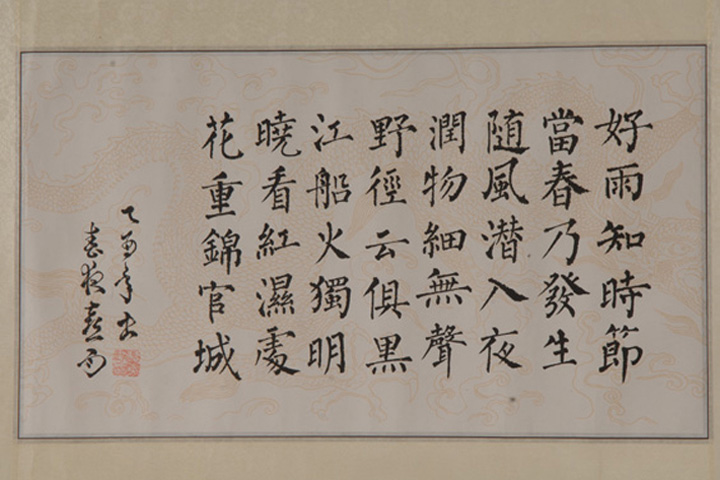 好雨知時節
當春乃發生
随風潜入夜
潤物細無聲
野徑云俱黒
江船火獨明
曉看紅濕處
花重錦官城
乙酉年书
春夜喜雨